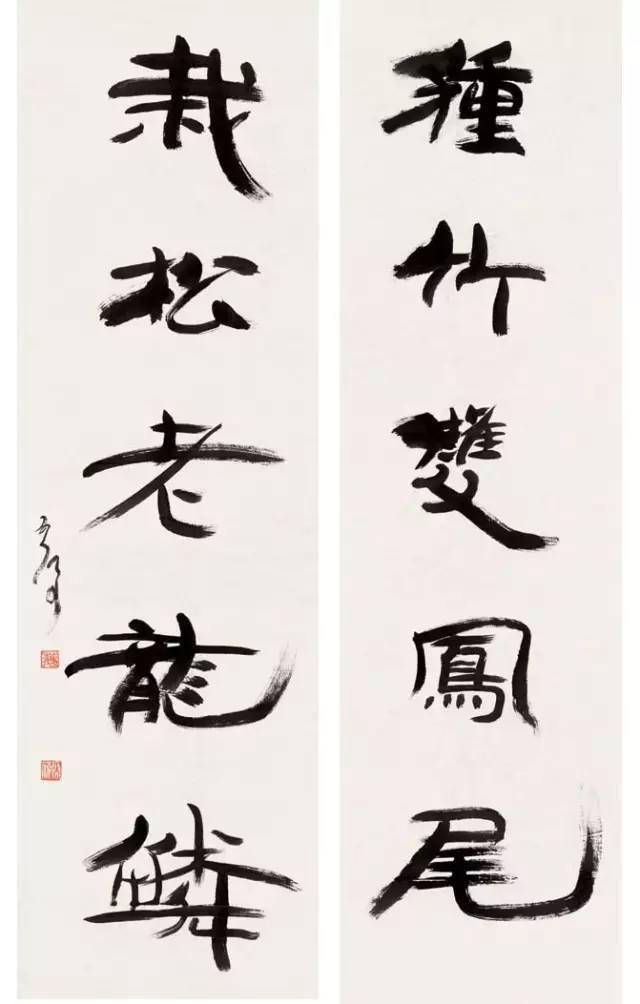 種竹雙鳳尾
栽松老龍鱗